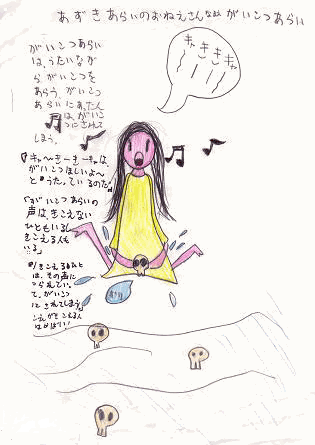 あずきあらいのおねえさん がいこつあらい
キャ
キ
キ
キャ
がいこつあらい
は、うたいなが
ら がいこつを
あらう。がいこつ
あらいにあったん
は、がいこ
つにされて
しまう。
『キャ〜キーキーキーは、
がいこつほしいよ〜
と うたっているのだ。
「がいこつあらいの
声は、きこえない
ひともいるし
きこえる人も
いる。」
きこえるひと
は、その声に
つられてい
て、がいこつ
にされてしまう。
こえがきこえる人